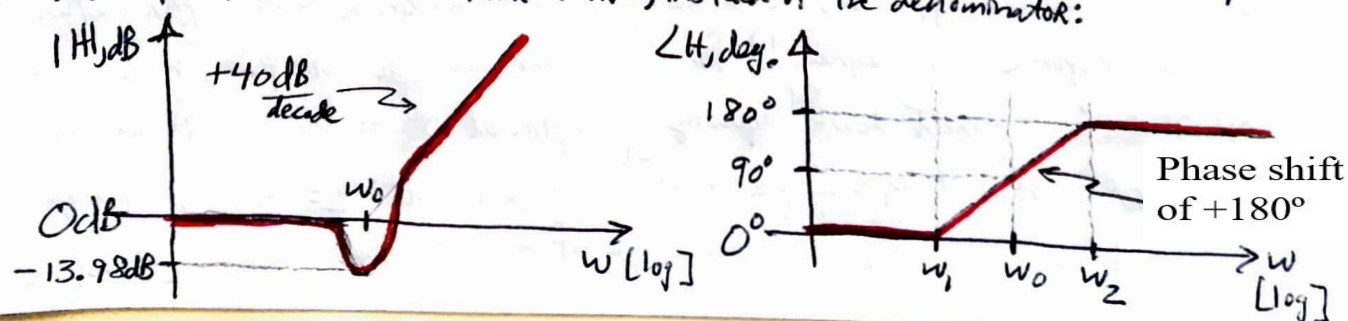 of the denominator:
|H|,dB
+40dB
decade
w₀
0dB
-13.98dB
w [log]
∠H, deg.
180°
90°
0°
w₁
w₀
w₂
w
[log]
Phase shift
of +180°